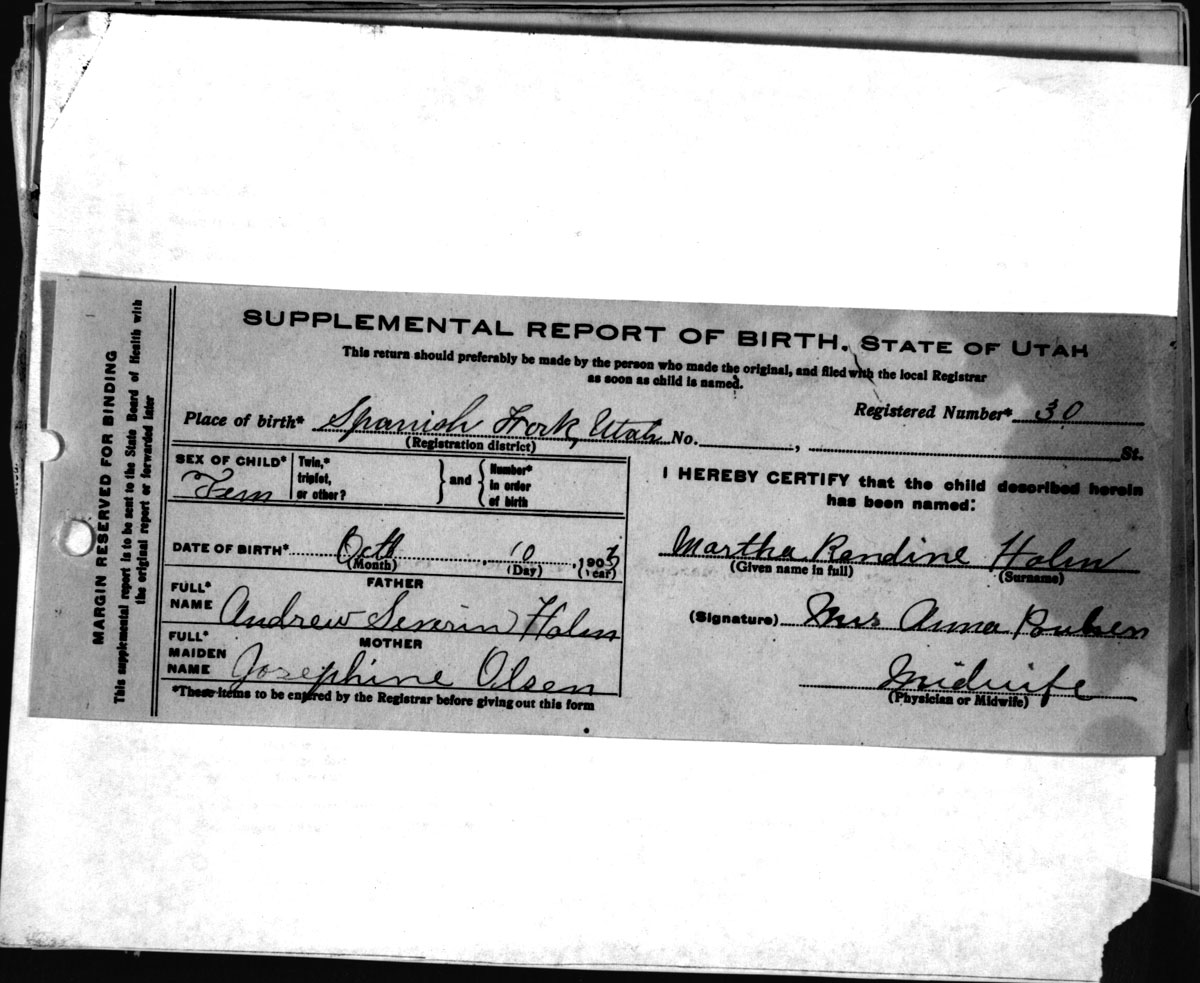 SUPPLEMENTAL REPORT OF BIRTH, STATE OF UTAH
This return should preferably be made by the person who made the original, and filed with the local Registrar
as soon as child is named.
Registered Number* 30
Place of birth* Spanish Fork, Utah No. , St.
(Registration district)
SEX OF CHILD* Fem
Twin,*
triplet,
or other?
and
Number*
in order
of birth
DATE OF BIRTH* Octb 10, 190
(Month) (Day) (Year)
FATHER
FULL*
NAME Andrew Severin Holm
MOTHER
FULL*
MAIDEN
NAME Josephine Olsen
*These items to be entered by the Registrar before giving out this form
I HEREBY CERTIFY that the child described herein
has been named:
Martha Randine Holm
(Given name in full) (Surname)
(Signature) Mrs Anna
Midwife
(Physician or Midwife)
MARGIN RESERVED FOR BINDING
This supplemental report is to be sent to the State Board of Health with
the original report or forwarded later